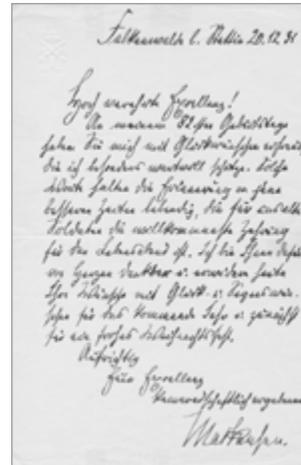 Falkenwalde b. Stettin 20.12.31
Hoch verehrte Exzellenz!
An meinem 82sten Geburtstage
haben Sie mich mit Glückwünschen erfreut,
die ich besonders wertvoll schätze. Solche
Worte halten die Erinnerung an jene
besseren Zeiten lebendig, die für uns alte
Soldaten die willkommenste Zehrung
für den Lebensabend ist. Ich bin Ihnen dafür
von Herzen dankbar u. erwidere heute
Ihre Wünsche mit Glück- u. Segenswün-
schen für das kommende Jahr u. zunächst
für ein frohes Weihnachtsfest.
Aufrichtig
Euer Exzellenz
kameradschaftlich ergebener